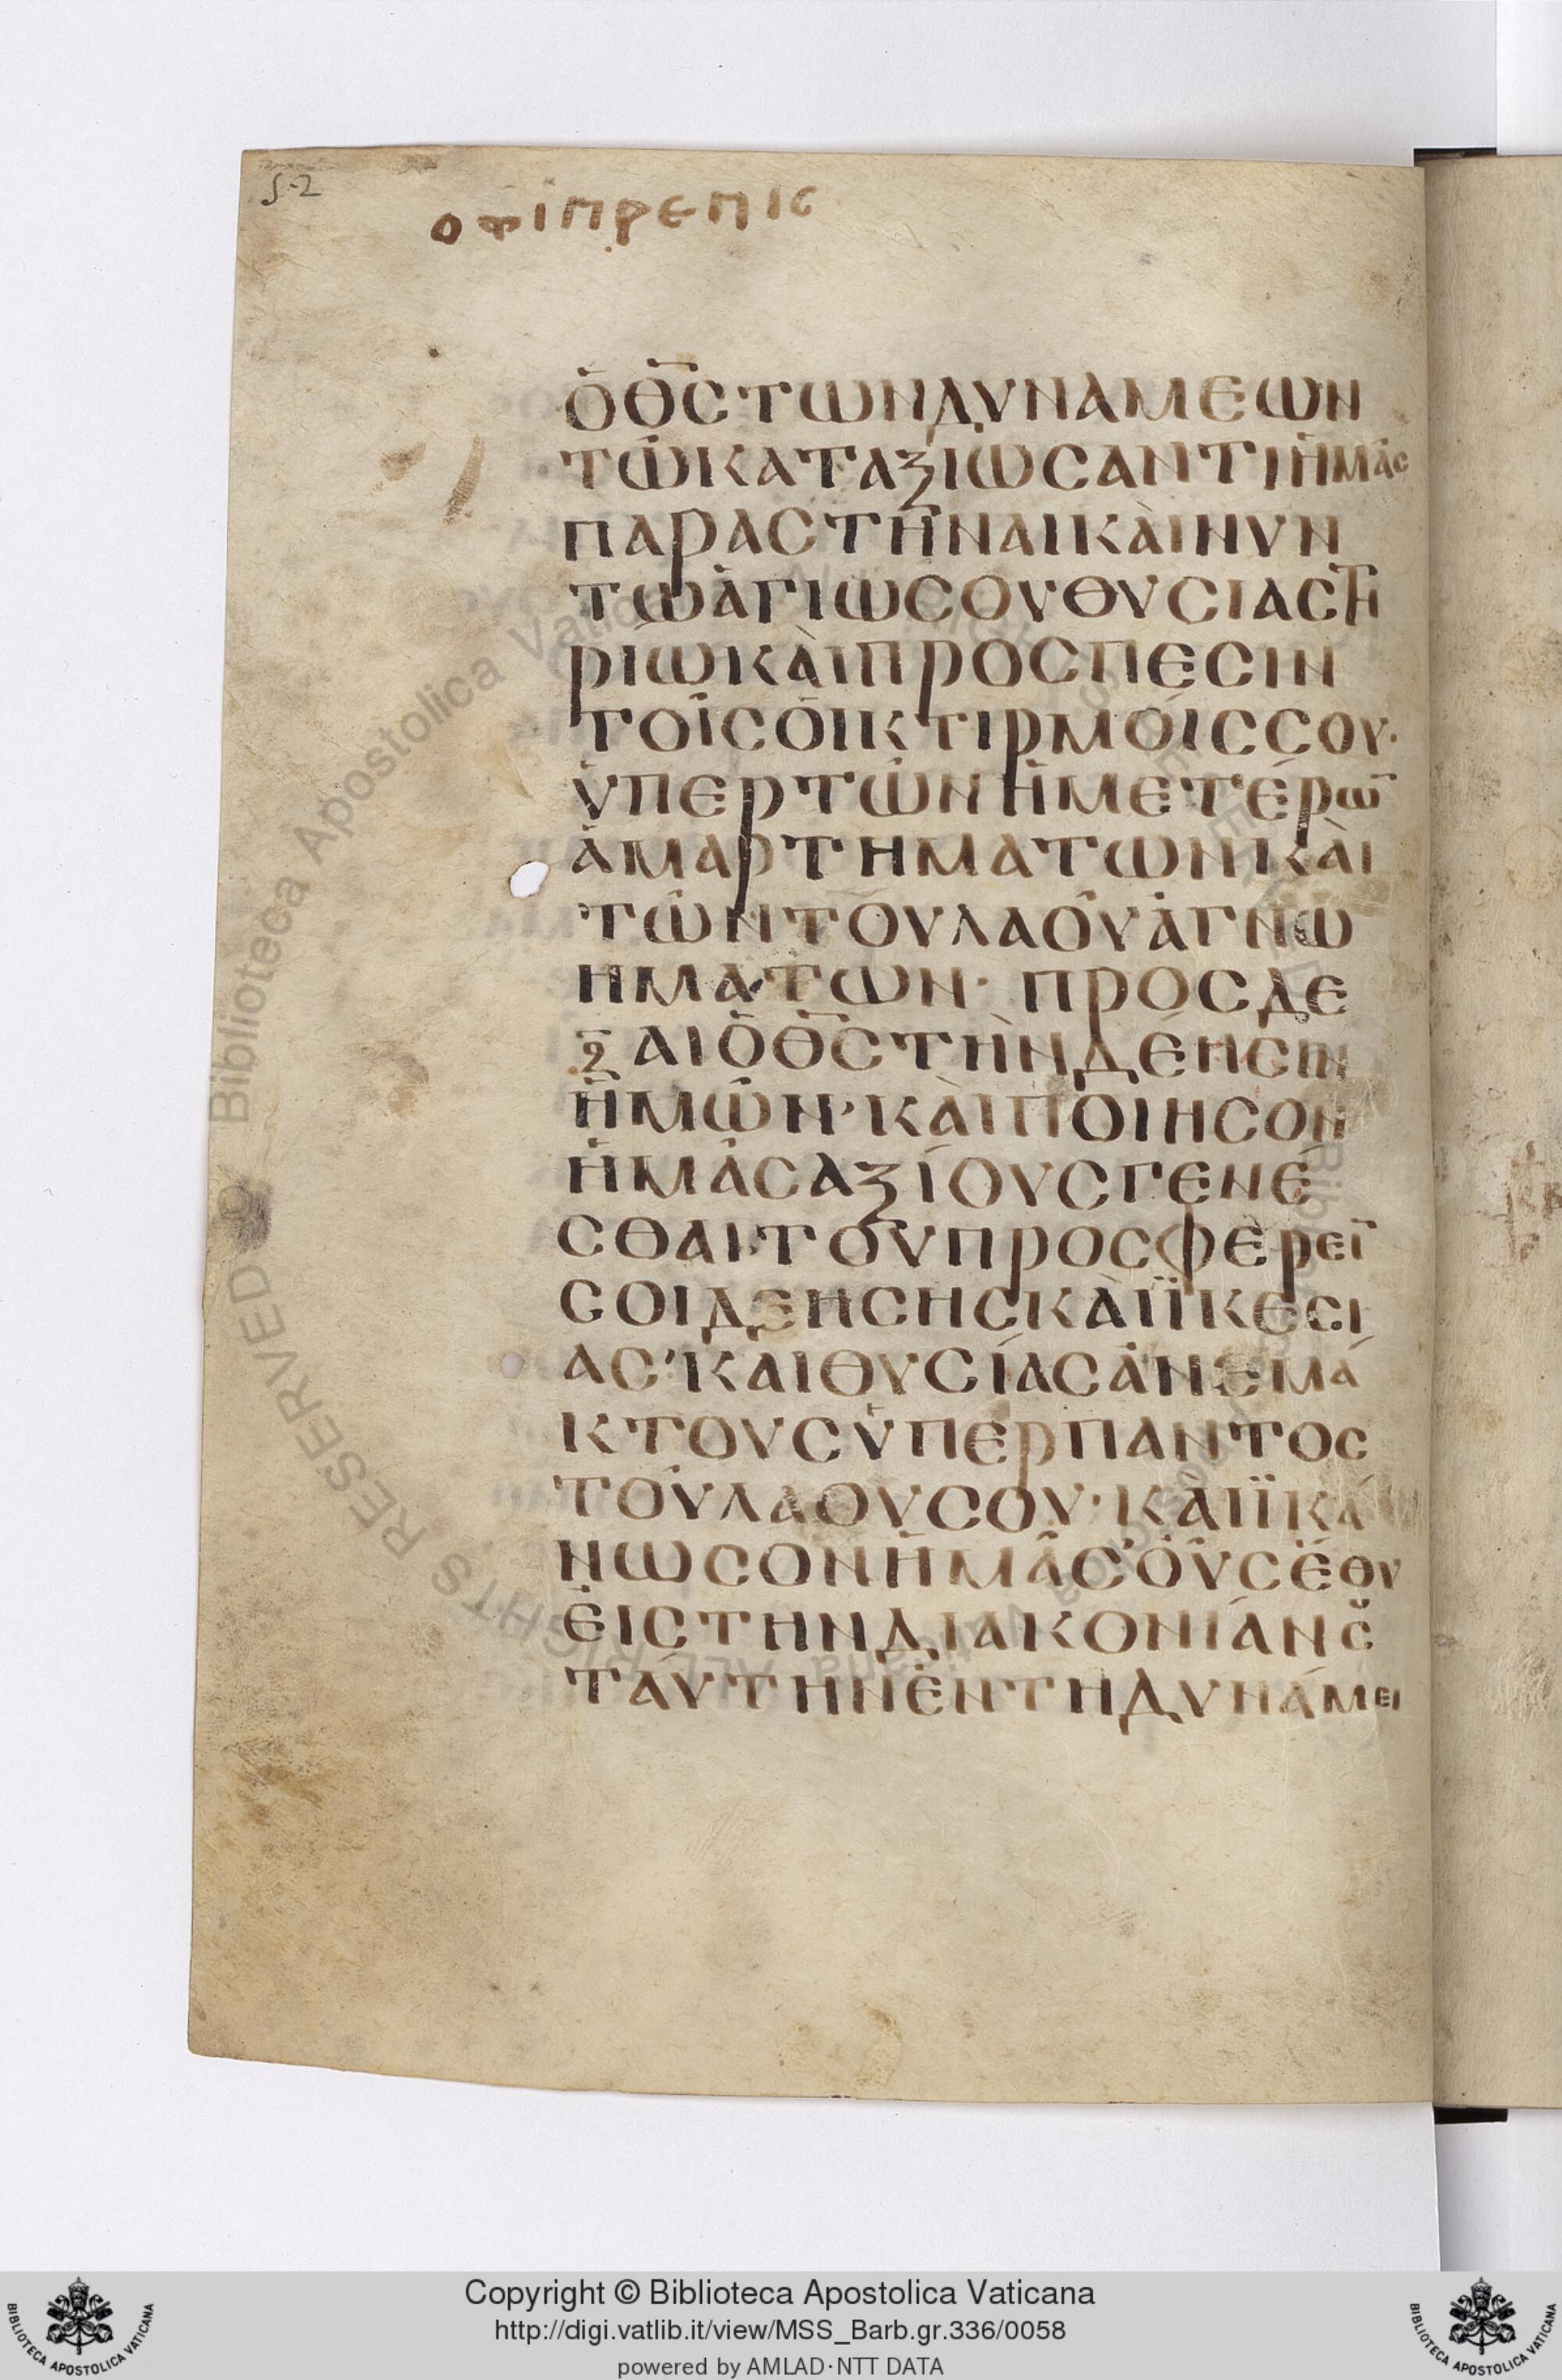 52
οφιπρεπις
ὁ θ̅ς̅ τῶν δυναμεων
τῶ καταξιώσαντι ἡμᾶς
παραστῆναι καὶ νυν
τω ἁγιω σου θυσιαστη
ρίω καὶ προσπεσιν
τοῖς ὀικτιρμόις σου·
ὑπερ τῶν ἡμετέρω̅
ἁμαρτηματων καὶ
τῶν τοῦ λαοῦ ἀγνω
ηματων· προσδε
ξαι ὁ θ̅ς̅ τὴν δέησιν
ἡμῶν· καὶ ποιησον
ἡμᾶς αξίους γενέ
σθαι του προσφέρει̅
σοι δεησης καὶ ϊκεσι
ας· καὶ θυσίας ἀνεμά
κτους ὑπερ παντος
τοῦ λαου σου· καὶ ϊκά
νωσον ἡμᾶς οὓς ἔθου
ἐις την διακονίάν σ̅
τάυτην ἐν τη δυνάμει
Biblioteca Apostolica Vaticana
ALL RIGHTS RESERVED ©
Copyright © Biblioteca Apostolica Vaticana
http://digi.vatlib.it/view/MSS_Barb.gr.336/0058
powered by AMLAD·NTT DATA
BIBLIOTECA APOSTOLICA VATICANA
BIBLIOTECA APOSTOLICA VATICANA